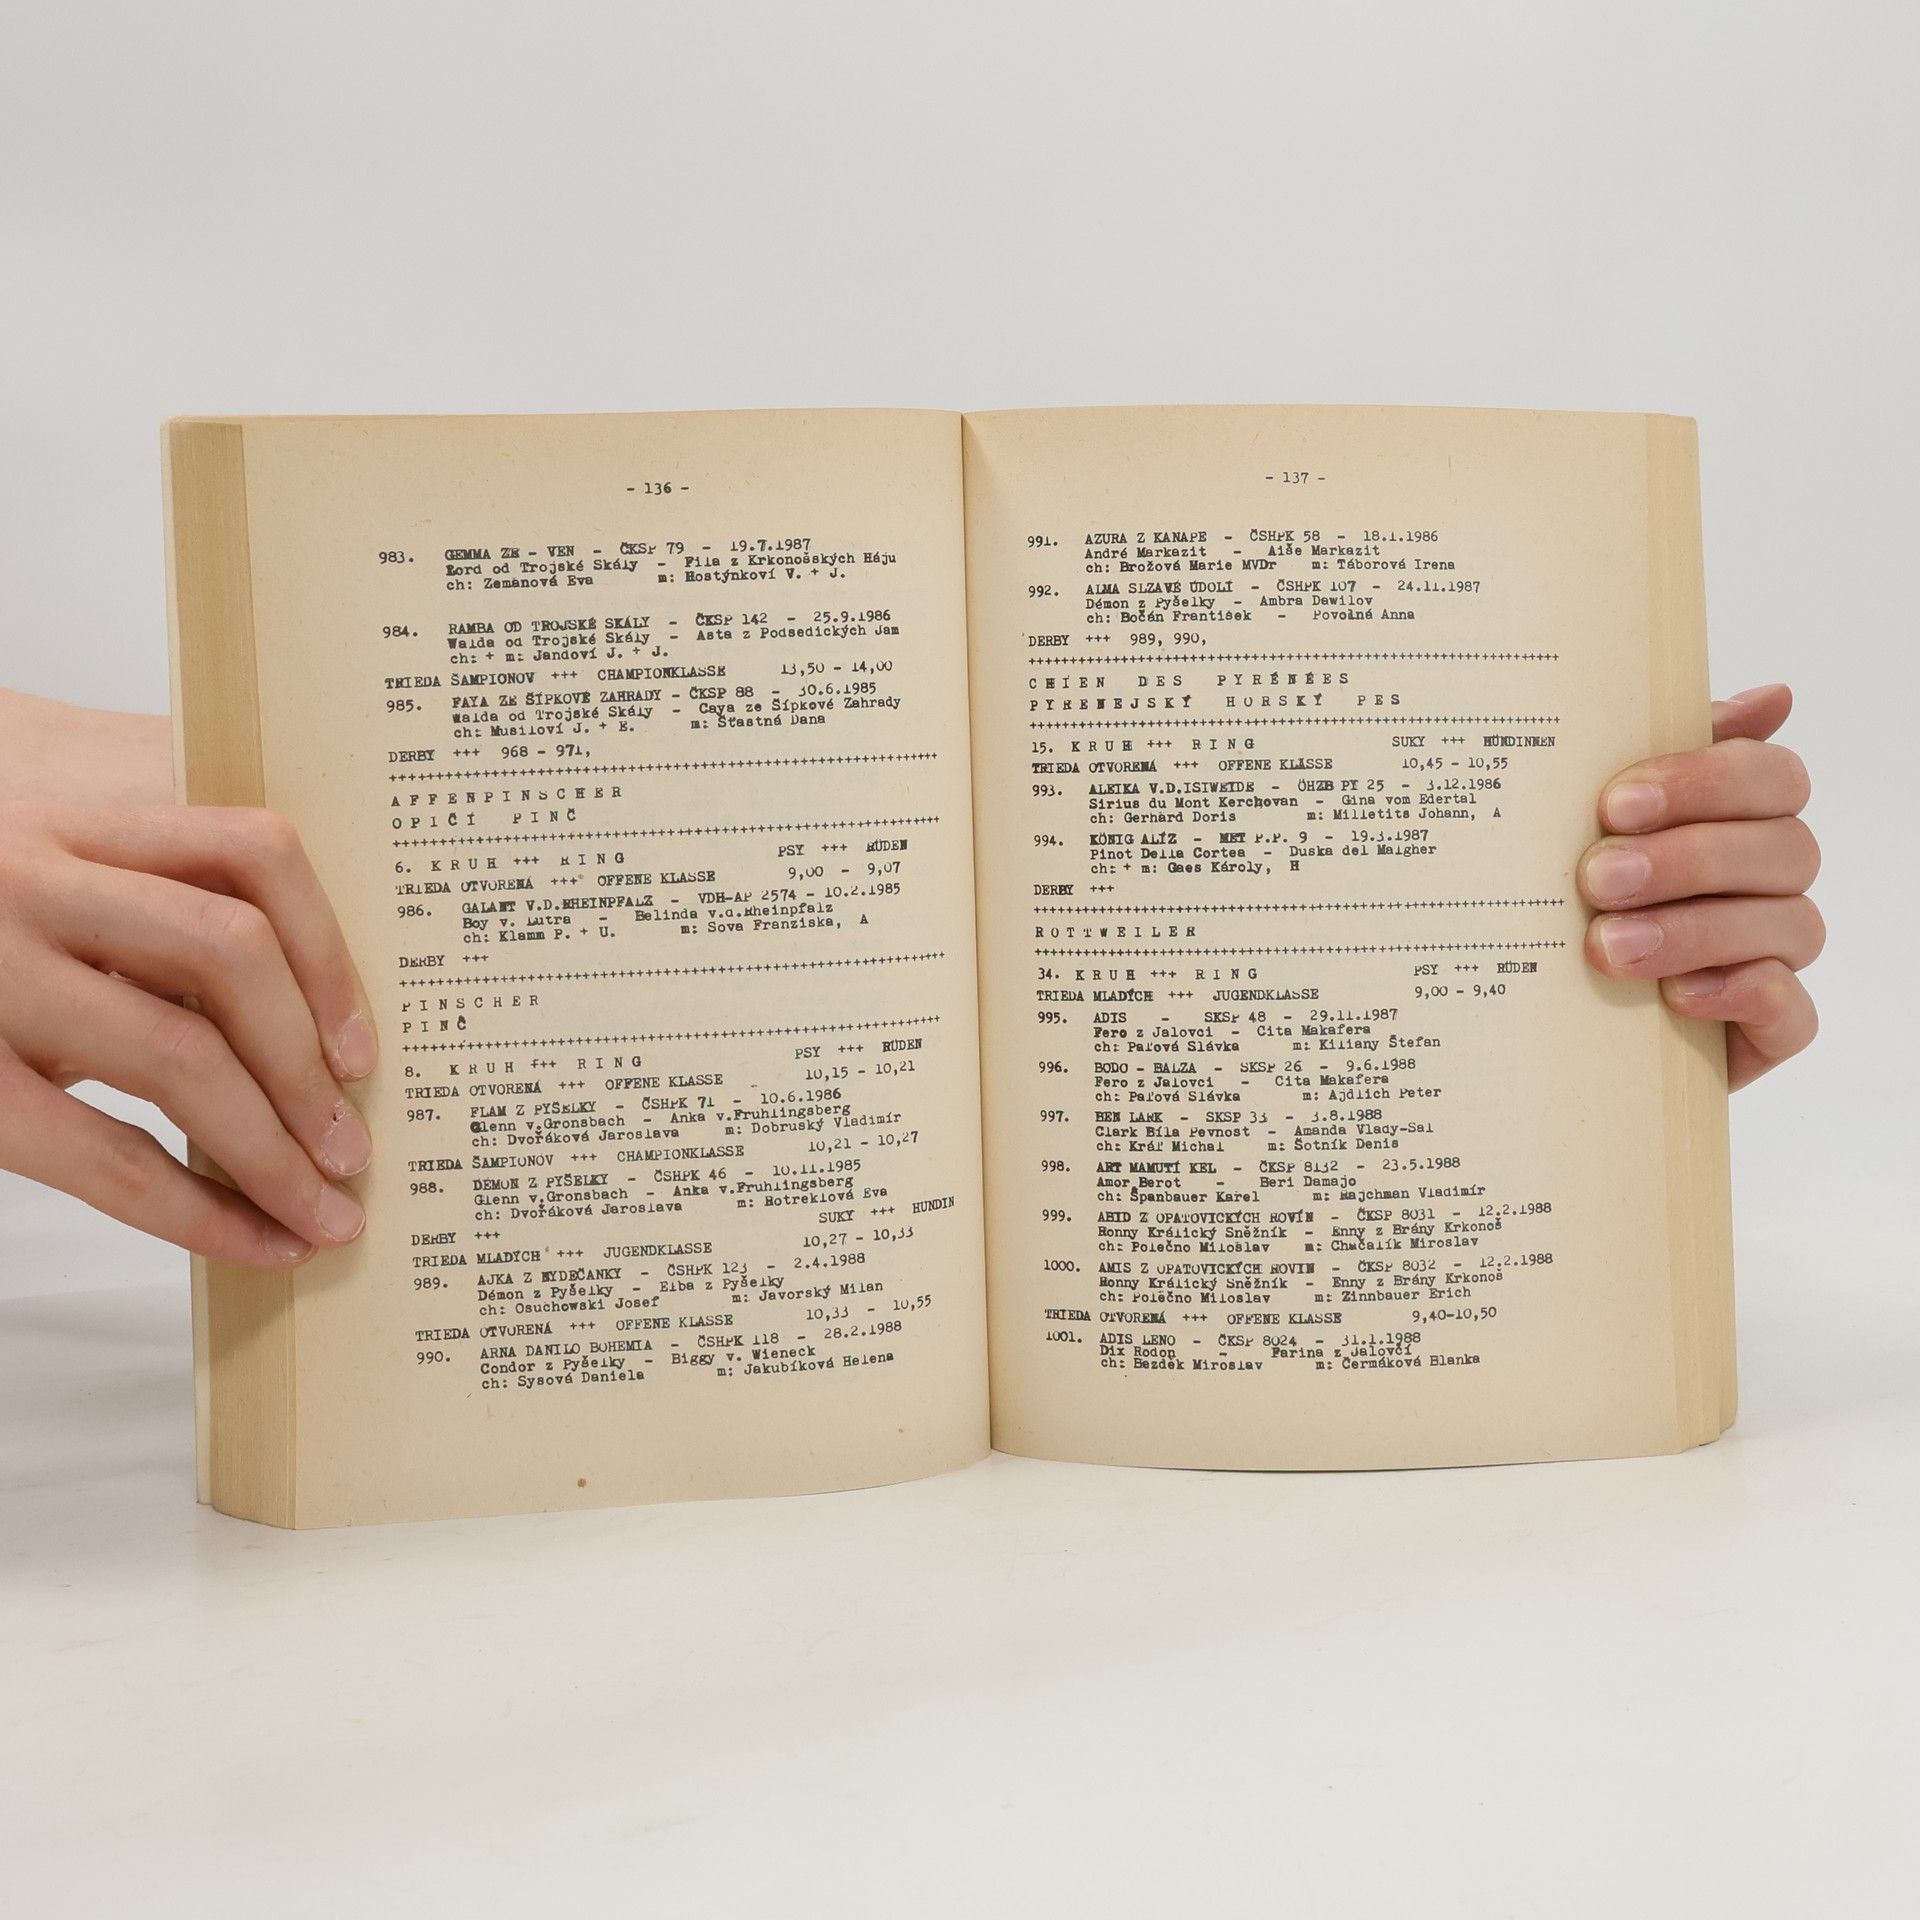 - 136 -
983. GEMMA ZE - VEN - ČKSP 79 - 19.7.1987
Lord od Trojské Skály - Fila z Krkonošských Háju
ch: Zemanová Eva m: Hostýnkoví V. + J.
984. RAMBA OD TROJSKÉ SKÁLY - ČKSP 142 - 25.9.1986
Walda od Trojské Skály - Asta z Podsedických Jam
ch: + m: Jandoví J. + J.
TRIEDA ŠAMPIONOV +++ CHAMPIONKLASSE 13,50 - 14,00
985. FAYA ZE ŠÍPKOVÉ ZAHRADY - ČKSP 88 - 30.6.1985
Walda od Trojské Skály - Caya ze Šípkové Zahrady
ch: Musiloví J. + E. m: Šťastná Dana
DERBY +++ 968 - 971,
++++++++++++++++++++++++++++++++++++++++++++++++++++++++++++++
A F F E N P I N S C H E R
O P I Č Í P I N Č
++++++++++++++++++++++++++++++++++++++++++++++++++++++++++++++
6. K R U H +++ R I N G PSY +++ RÜDEN
TRIEDA OTVORENÁ +++ OFFENE KLASSE 9,00 - 9,07
986. GALANT V.D.RHEINPFALZ - VDH-AP 2574 - 10.2.1985
Boy v. Lutra - Belinda v.d.Rheinpfalz
ch: Klamm P. + U. m: Sova Franziska, A
DERBY +++
++++++++++++++++++++++++++++++++++++++++++++++++++++++++++++++
P I N S C H E R
P I N Č
++++++++++++++++++++++++++++++++++++++++++++++++++++++++++++++
8. K R U H +++ R I N G PSY +++ RÜDEN
TRIEDA OTVORENÁ +++ OFFENE KLASSE 10,15 - 10,21
987. FLAM Z PYŠELKY - ČSHPK 71 - 10.6.1986
Glenn v.Gronsbach - Anka v.Fruhlingsberg
ch: Dvořáková Jaroslava m: Dobruský Vladimír
TRIEDA ŠAMPIONOV +++ CHAMPIONKLASSE 10,21 - 10,27
988. DÉMON Z PYŠELKY - ČSHPK 46 - 10.11.1985
Glenn v.Gronsbach - Anka v.Fruhlingsberg
ch: Dvořáková Jaroslava m: Hotreklová Eva
DERBY +++ SUKY +++ HUNDIN
TRIEDA MLADÝCH +++ JUGENDKLASSE 10,27 - 10,33
989. AJKA Z NYDEČANKY - ČSHPK 123 - 2.4.1988
Démon z Pyšelky - Elba z Pyšelky
ch: Osuchowski Josef m: Javorský Milan
TRIEDA OTVORENÁ +++ OFFENE KLASSE 10,33 - 10,55
990. ARNA DANILO BOHEMIA - ČSHPK 118 - 28.2.1988
Condor z Pyšelky - Biggy v. Wieneck
ch: Sysová Daniela m: Jakubíková Helena
- 137 -
991. AZURA Z KANAPE - ČSHPK 58 - 18.1.1986
André Markazit - Aiše Markazit
ch: Brožová Marie MVDr m: Táborová Irena
992. ALMA SLZAVÉ ÚDOLÍ - ČSHPK 107 - 24.11.1987
Démon z Pyšelky - Ambra Dawilov
ch: Bočán František - Povolná Anna
DERBY +++ 989, 990,
++++++++++++++++++++++++++++++++++++++++++++++++++++++++++++++
C H I E N D E S P Y R É N É E S
P Y R E N E J S K Ý H O R S K Ý P E S
++++++++++++++++++++++++++++++++++++++++++++++++++++++++++++++
15. K R U H +++ R I N G SUKY +++ HÜNDINNEN
TRIEDA OTVORENÁ +++ OFFENE KLASSE 10,45 - 10,55
993. ALEIKA V.D.ISIWEIDE - ÖHZB PY 25 - 3.12.1986
Sirius du Mont Kerchovan - Gina vom Edertal
ch: Gerhard Doris m: Milletits Johann, A
994. KÖNIG ALÍZ - MET P.P. 9 - 19.3.1987
Pinot Della Cortea - Duska del Malgher
ch: + m: Gaes Károly, H
DERBY +++
++++++++++++++++++++++++++++++++++++++++++++++++++++++++++++++
R O T T W E I L E R
++++++++++++++++++++++++++++++++++++++++++++++++++++++++++++++
34. K R U H +++ R I N G PSY +++ RÜDEN
TRIEDA MLADÝCH +++ JUGENDKLASSE 9,00 - 9,40
995. ADIS - SKSP 48 - 29.11.1987
Fero z Jalovci - Cita Makafera
ch: Paľová Slávka m: Kiliany Štefan
996. BODO - BALZA - SKSP 26 - 9.6.1988
Fero z Jalovci - Cita Makafera
ch: Paľová Slávka m: Ajdlich Peter
997. BEN LARK - SKSP 33 - 3.8.1988
Clark Bíla Pevnost - Amanda Vlady-Sal
ch: Kráľ Michal m: Šotník Denis
998. ART MAMUTÍ KEL - ČKSP 8132 - 23.5.1988
Amor Berot - Beri Damajo
ch: Španbauer Karel m: Rajchman Vladimír
999. ABID Z OPATOVICKÝCH ROVÍN - ČKSP 8031 - 12.2.1988
Ronny Králický Sněžník - Enny z Brány Krkonoš
ch: Polečno Miloslav m: Chučalík Miroslav
1000. AMIS Z OPATOVICKÝCH ROVIN - ČKSP 8032 - 12.2.1988
Ronny Králický Sněžník - Enny z Brány Krkonoš
ch: Polečno Miloslav m: Zinnbauer Erich
TRIEDA OTVORENÁ +++ OFFENE KLASSE 9,40-10,50
1001. ADIS LENO - ČKSP 8024 - 31.1.1988
Dix Rodon - Farina z Jalovčí
ch: Bezděk Miroslav m: Čermáková Blanka